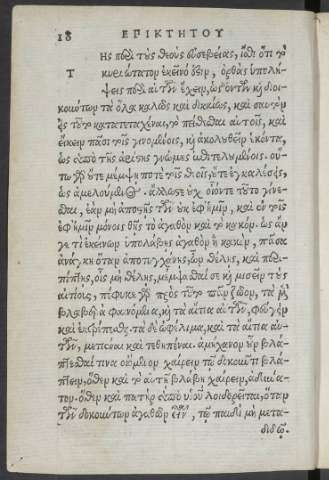 18 ΕΠΙΚΤΗΤΟΥ
Τ
ῆς περὶ τοὺς θεοὺς εὐσεβείας, ἴσθι ὅτι τὸ
κυριώτατον ἐκεῖνό ἐστιν, ὀρθὰς ὑπολή-
ψεις περὶ αὐτῶν ἔχειν, ὡς ὄντων καὶ διοι-
κούντων τὰ ὅλα καλῶς καὶ δικαίως, καὶ σαυτὸν
εἰς τοῦτο κατατεταχέναι, τὸ πείθεσθαι αὐτοῖς, καὶ
εἴκειν πᾶσι τοῖς γινομένοις, καὶ ἀκολουθεῖν ἑκόντα,
ὡς ὑπὸ τῆς ἀρίστης γνώμης ἐπιτελουμένοις. οὕ-
τω γὰρ οὔτε μέμψῃ ποτὲ τοὺς θεοὺς, οὔτε ἐγκαλέσεις,
ὡς ἀμελούμενος. ἄλλως τε οὐχ οἷόν τε τοῦτο γίνε-
σθαι, ἐὰν μὴ ἀπὸ τῆς τῶν οὐκ ἐφ' ἡμῖν, καὶ ἐν τοῖς
ἐφ' ἡμῖν μόνοις θῇς τὸ ἀγαθὸν καὶ τὸ κακόν. ὡς ἄν
γέ τι ἐκείνων ὑπολάβῃς ἀγαθὸν ἢ κακὸν, πᾶσα
ἀνάγκη ὅταν ἀποτυγχάνῃς, ὧν θέλῃς, καὶ περι-
πίπτῃς, οἷς μὴ θέλῃς, μέμψασθαί σε καὶ μισεῖν τοὺς
αἰτίους, πέφυκε γὰρ πρὸς τοῦτο πᾶν ζῶον, τὰ μὲν
βλαβερὰ φαινόμενα, καὶ τὰ αἴτια αὐτῶν, φεύγειν
καὶ ἐκτρέπεσθαι· τὰ δὲ ὠφέλιμα, καὶ τὰ αἴτια αὐ-
τῶν, μετιέναι καὶ τεθηπέναι. ἀμήχανον οὖν βλά-
πτεσθαί τινα οἰόμενον χαίρειν τῷ δοκοῦντι βλά-
πτειν, ὥσπερ καὶ τὸ αὐτῇ βλάβῃ χαίρειν, ἀδύνα-
τον· ὅθεν καὶ πατὴρ ὑπὸ υἱοῦ λοιδορεῖται, ὅταν
τῶν δοκούντων ἀγαθῶν εἶναι, τῷ παιδὶ μὴ μετα-
διδῷ.